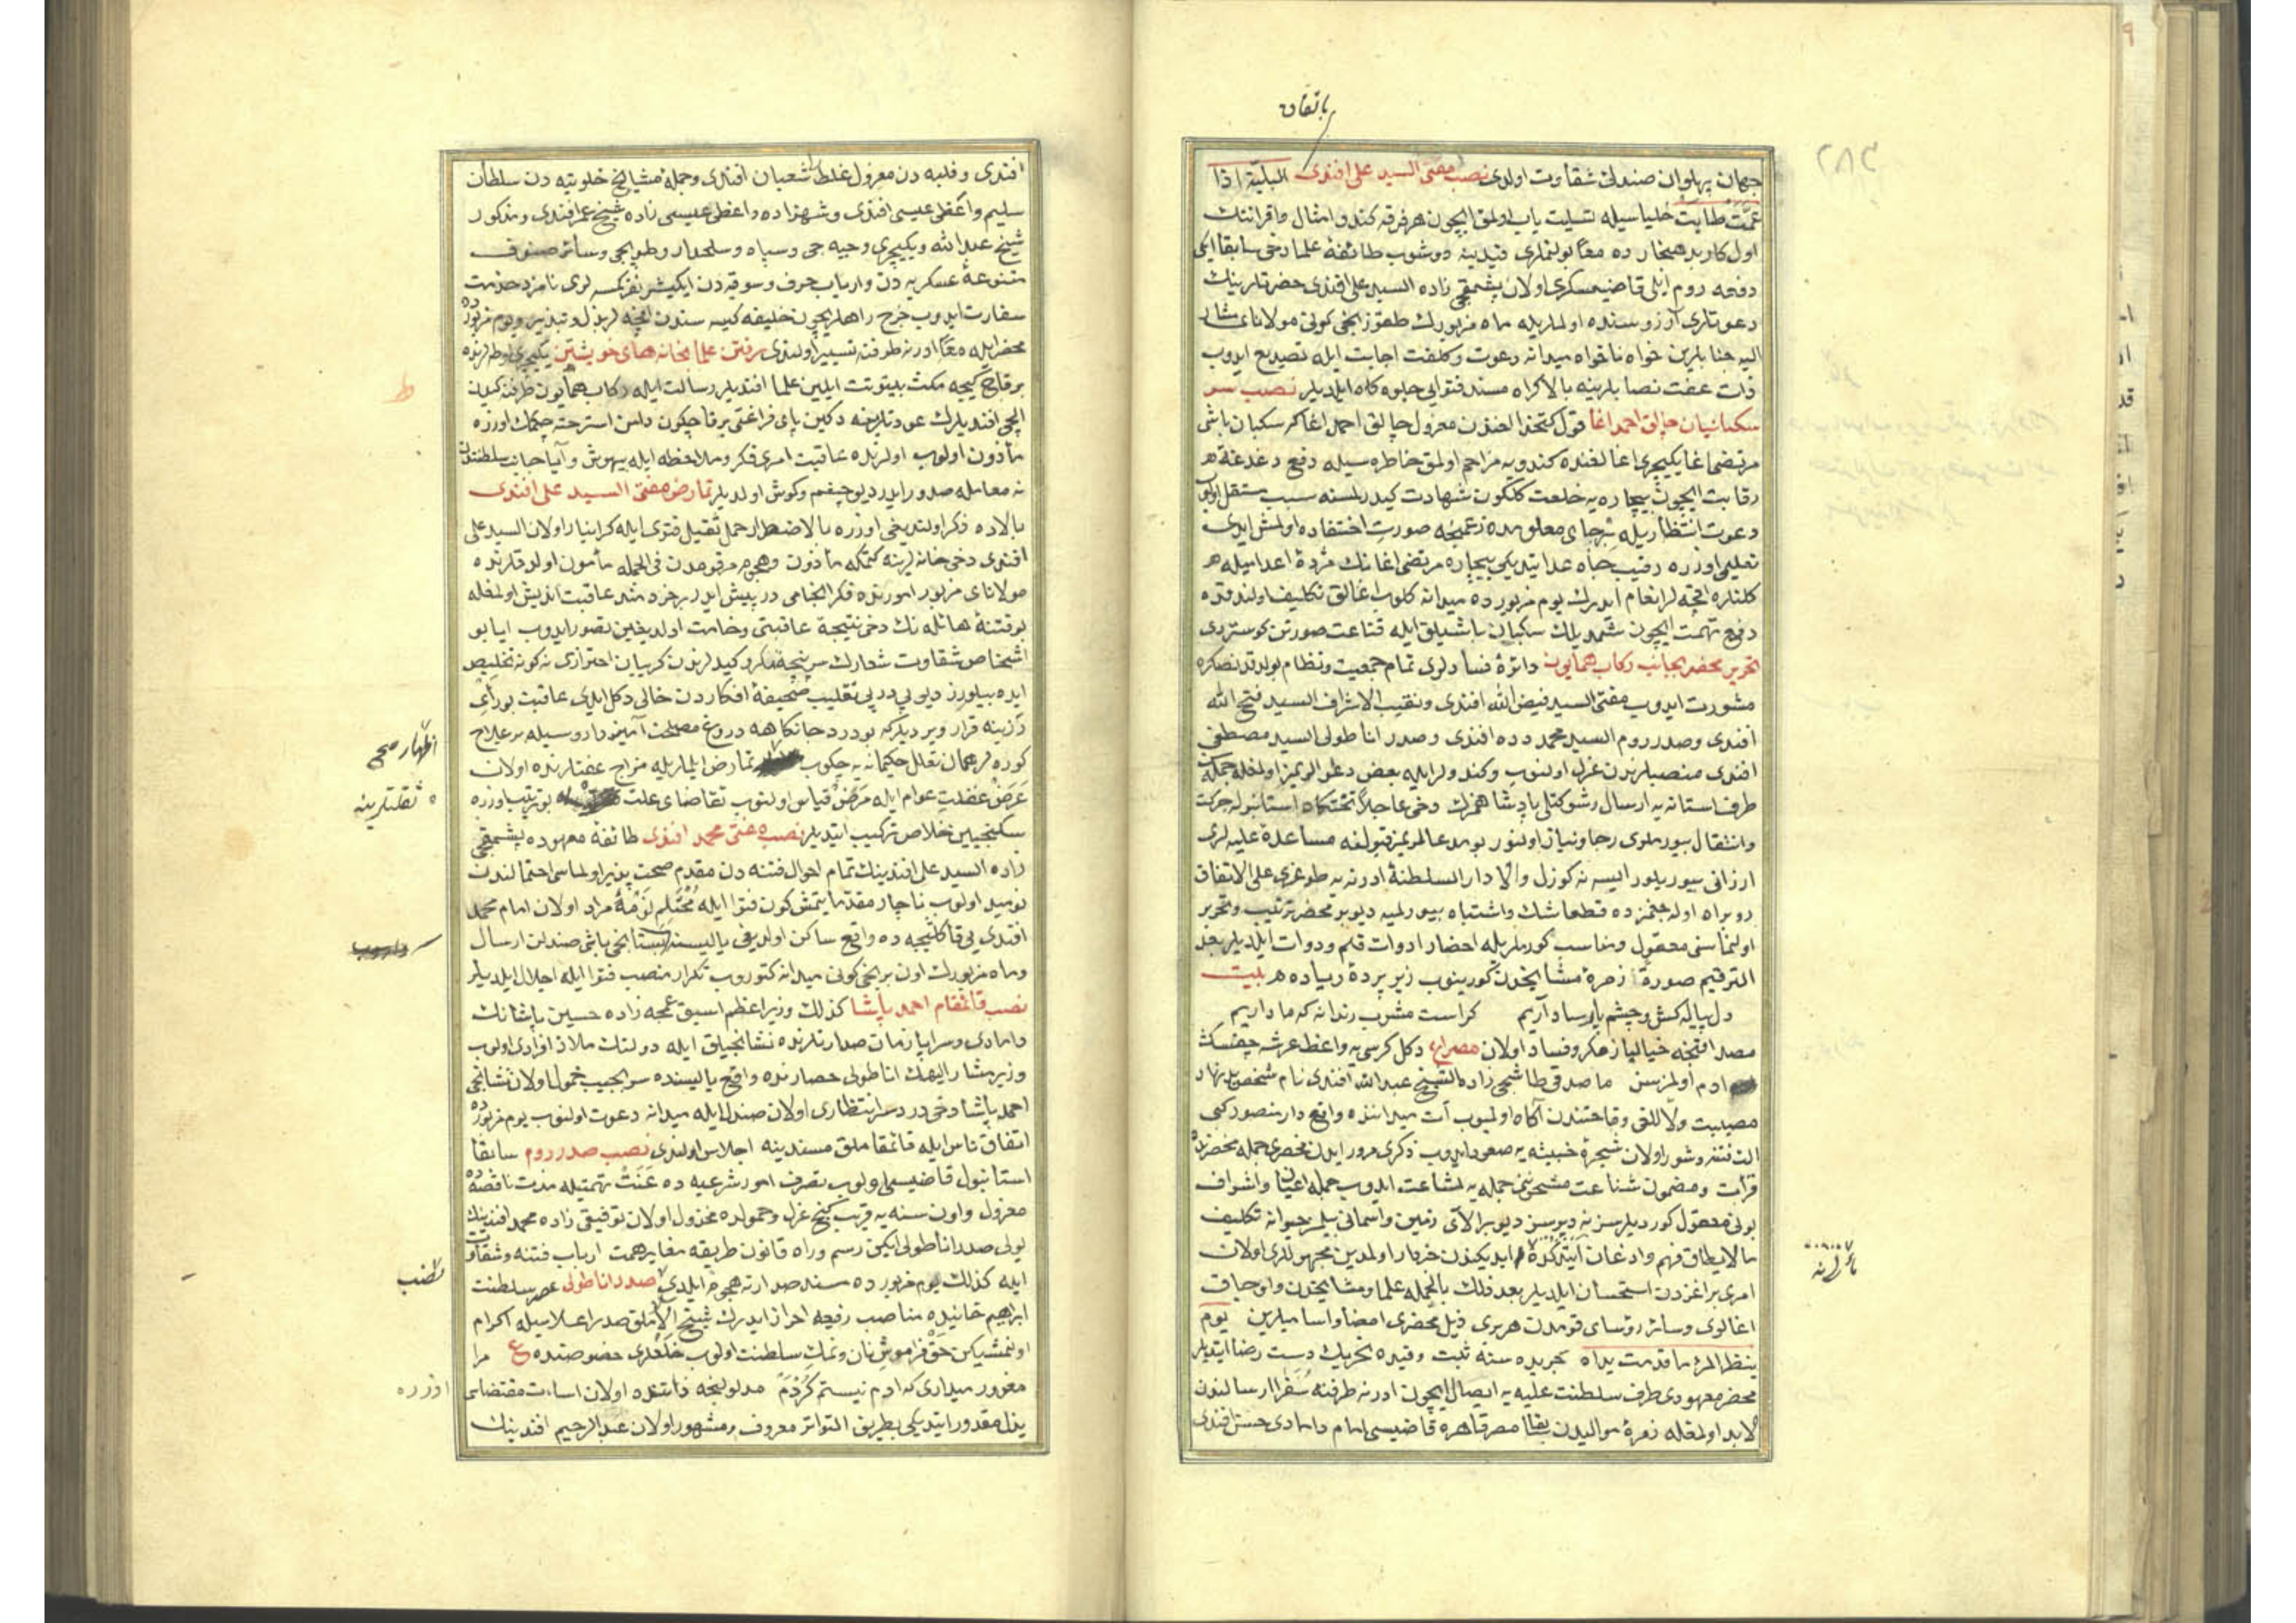 باتفاق
جهان پهلوان صندلئ شقاوت اولدی نصب مفتی السید علی افندی البلیة اذا
عمّت طابت خلیاسیله تسلیت یاب اولمق ایچون هر فرقه کندو امثال و اقرانتك
اول کار بدهنجارده معًا بولنملری قیدینه دوشوب طائفهٔ علما دخی سابقا ایکی
دفعه روم ایلی قاضیعسکری اولان پشمقجی زاده السید علی افندی حضرتلرینك
دعوتلری آرزوسنده اولملریله ماه مزبورك طقوزنجی کونی مولانای مشار
الیه جنابلرین خواه ناخواه میدانه دعوت و کلفت اجابت ایله تصدیع ایدوب
ذات عفت نصابلرینه بالاکراه مسند فتوایی جلوه کاه ایلدیلر نصب سر
سکبانیان چالق احمد اغا قول کتخدالغندن معزول چالق احمد اغا که سکبان باشی
مرتضی اغا یکیچری اغالغنده کندویه مزاحم اولمق خاطره سیله دفع دغدغهٔ
رقابت ایچون بیچاره یه خلعت کلکون شهادت کیدرلمسنه سبب مستقل اولوب
دعوت انتظاریله بر جای معلومده زعمنجه صورت اختفاده اولمش ایدی
تعلیمی اوزره رقیب جاه عد ایتدیکی بیچاره مرتضی اغانك مژدهٔ اعدامیله
کلنلره اقچه لر انعام ایدرك یوم مزبورده میدانه کلوب اغالق تکلیف اولندقده
دفع تهمت ایچون شمدیلك سکبان باشیلق ایله قناعت صورتن کوستردی
تحریر محضر بجانب رکاب همایون دائرهٔ فسادلری تمام جمعیت و نظام بولدقدنصکره
مشورت ایدوب مفتی السید فیض الله افندی و نقیب الاشراف السید فتح الله
افندی و صدر روم السید محمد دده افندی و صدر اناطولی السید مصطفی
افندی منصبلرندن عزل اولنوب و کندولر ایله بعض دعوالریمز اولمغله جمله
طرف استانه یه ارسال و شوکتلی پادشاهمزك دخی عاجلاً تختکاه استانبوله حرکت
و انتقال بیورملری رجا و نیاز اولنور بو مدعالریمز قبولنه مساعدهٔ علیه لری
ارزانی بیوریلور ایسه نه کوزل والا دار السلطنهٔ ادرنه یه طوغری علی الاتفاق
رو براه اوله جغمزده قطعا شك و اشتباه بیورلمیه دیو بر محضر ترتیب و تحریر
اولنماسنی معقول و مناسب کورملریله احضار ادوات قلم و دوات ایلدیلر بعد
الترقیم صورةً زمرهٔ مشایخدن کورینوب زیر پردهٔ ریاده بیت
دل پیاله کش و چشم پارسا داریم کراست مشرب رندانه که ما داریم
مصداقنجه خیالباز مکر و فساد اولان مصراع دکل کرسی یه واعظ عرشه چیقسك
ادم اولمزسن ما صدقی طاشجی زاده الشیخ عبدالله افندی نام شخص
فرائت و مضمون شناعت مشحونن جمله یه اشاعت ایدوب جمله اعیان و اشراف
بونی معقول کوردیلر سز نه دیرسز دیو برالای زمین و اسمانی بیلمز حیوانه تکلیف
مالایطاق فهم و اذعان ایتدکده ایدیکندن خبردار اولمدین مجهوللری اولان
امری بر اغزدن استحسان ایلدیلر بعد ذلك بالجمله علما و مشایخدن و اوجاق
اغالری و سائر رؤسای قومدن هر بری ذیل محضری امضا و اسامیلرین یوم
ینظر المرء ما قدمت یداه جریده سنه ثبت و قیده تحریك دست رضا ایتدیلر
محضر معهودی طرف سلطنت علیه یه ایصال ایچون ادرنه طرفنه سفرا ارسالندن
لابد اولمغله زمرهٔ موالیدن سابقا مصر قاهره قاضیسی امام دامادی حسن افندی
افندی و فلبه دن معزول غلطه لی شعبان افندی و جملهٔ مشایخ خلوتیه دن سلطان
سلیم واعظی عیسی افندی و شهزاده واعظی عیسی زاده شیخ عمر افندی و مذکور
شیخ عبدالله و یکیچری و جبه جی و سپاه و سلحدار و طوپجی و سائر صنوف
متنوعهٔ عسکریه دن و ارباب حرف و سوقیه دن ایکیشر نفر کمسه لری نامزد خدمت
سفارت ایدوب خرج راهلریچون خلیفه کیسه سندن اقچه لر بذل و تبذیر و یوم مزبورده
محضر ایله معًا ادرنه طرفنه تسییر اولندی رفتن علما بخانهای خویشتن یکیچری اوطه لرنده
بر قاچ کیجه مکث و بیتوتت ایلین علما افندیلر رسالت ایله رکاب همایون طرفنه کیدن
ایلچی افندیلرك عودتلرینه دکین پای فراغتی بر قاچ کون دامن استراحته چکمك اوزره
مأذون اولوب اولرنده عاقبت امری فکر و ملاحظه ایله بیهوش و آیا جانب سلطنتدن
نه معامله صدور ایدر دیو چشم و کوش اولدیلر تمارض مفتی السید علی افندی
بالاده ذکر اولندیغی اوزره بالاضطرار حمل ثقیل فتوی ایله کرانبار اولان السید علی
افندی دخی خانه لرینه کتمکه مأذون و هجوم مرقومدن فی الجمله مأمون اولدقلرنده
مولانای مزبور امورنده فکر انجامی در پیش ایدر بر خردمند عاقبت اندیش اولمغله
بو فتنهٔ هائله نك دخی نتیجهٔ عاقبتی وخامت اولدیغین تصور ایدوب ایا بو
اشخاص شقاوت شعارك سرپنجهٔ مکر و کیدلرندن کریبان احترازی نه کونه تخلیص
ایده بیلورز دیو پی در پی تقلیب صحیفهٔ افکاردن خالی دکل ایدی عاقبت بو رأی
رزینه قرار ویردیلر که بو درد جانکاهه دروغ مصلحت آمیز دارو سیله بر علاج
اظهار صحی
کوره لر همان تعلل حکیمانه یه چکوب تمارض ایلملریله مزاج عفتلرنده اولان
ثقلتلرینه
عرض غفلت عوام ایله مرض قیاس اولنوب تقاضای علت بو ترتیب اوزره
سکنجبین خلاص ترکیب ایتدیلر نصب مفتی محمد افندی طائفهٔ معهوده پشمقجی
زاده السید علی افندینك تمام احوال فتنه دن مقدم صحت پذیر اولماسی احتمالندن
نومید اولوب ناچار مقدما یتمش کون فتوا ایله محتلم نومهٔ مراد اولان امام محمد
افندی یی قاکلیجه ده واقع ساکن اولدیغی یالیسندن بستانجی باشی صندلن ارسال
و ماه مزبورك اون برنجی کونی میدانه کتوروب تکرار منصب فتوا ایله اجلال ایلدیلر
نصب قائمقام احمد پاشا کذلك وزیر اعظم اسبق عمجه زاده حسین پاشانك
دامادی و سراپا زمان صدارتلرنده نشانجیلق ایله دولتك ملاذ افرادی اولوب
وزیر مشار الیهك اناطولی حصارنده واقع یالیسنده سر بجیب خمول اولان نشانجی
احمد پاشا دخی در دسر انتظاری اولان صندل ایله میدانه دعوت اولنوب یوم مزبورده
اتفاق ناس ایله قائمقاملق مسندینه اجلاس اولندی نصب صدر روم سابقا
استانبول قاضیسی اولوب تصرف امور شرعیه ده عنت تهمتیله مدت ناقصه ده
معزول و اون سنه یه قریب کنج عزل و خمولده مخذول اولان توفیقی زاده محمد افندینك
یولی صدر اناطولی ایکن رسم و راه قانون طریقه مغایر همت ارباب فتنه و شقاوت
نصب
ایله کذلك یوم مزبورده مسند صدارته هجوم ایلدی صدر اناطولی عصر سلطنت
ابراهیم خانیده مناصب رفیعه احراز ایدرك شیخ الاسلاملق صدر اعلاسیله اکرام
اولنمشیکن حق فراموش نان و نمك سلطنت اولوب خلعلری خصوصنده ع مرا
مغرور میداری که ادم نیستم کردم مدلولنجه ذاتنده اولان اساءت مقتضاسی
اوزره
بذل مقدور ایتدیکی بطریق التواتر معروف و مشهور اولان عبدالرحیم افندینك